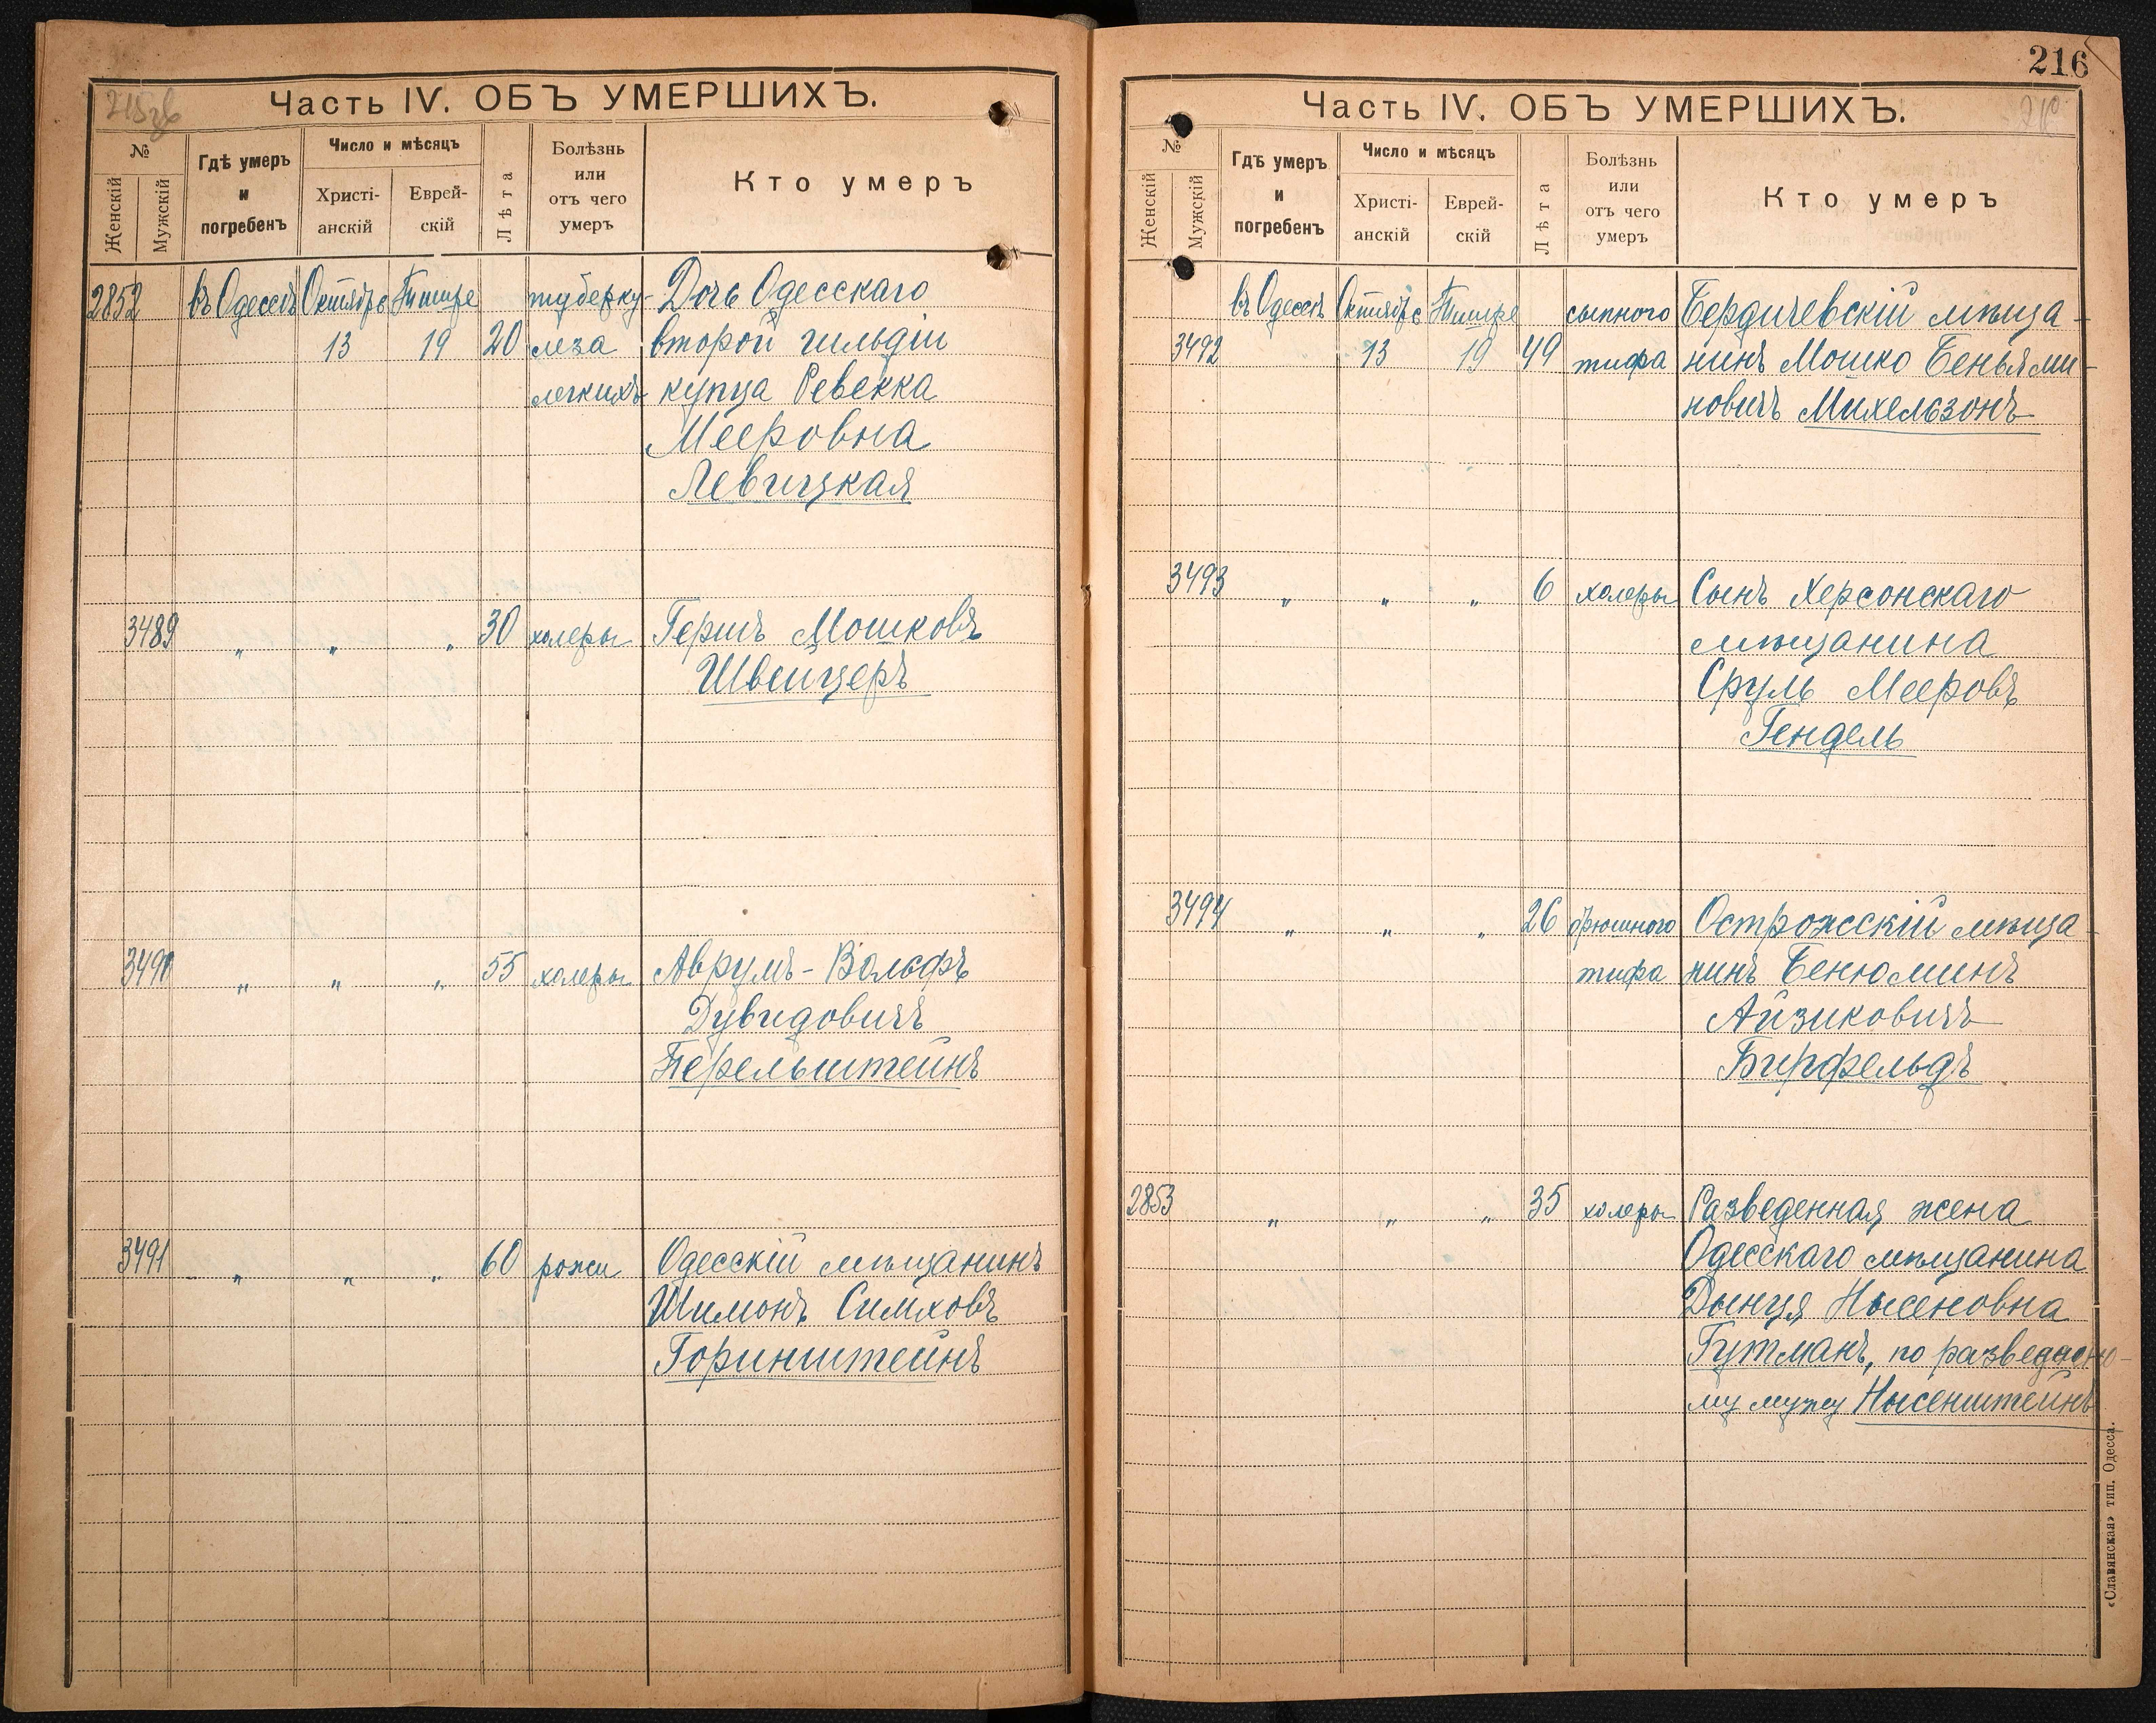 215зв
Часть IV. ОБЪ УМЕРШИХЪ.
№
Женскій
Мужскій
Гдѣ умеръ
и
погребенъ
Число и мѣсяцъ
Христі-
анскій
Еврей-
скій
Лѣта
Болѣзнь
или
отъ чего
умеръ
Кто умеръ
2852 въ Одессѣ Октябрь Тишре туберку- Дочь Одесскаго
13 19 20 леза второй гильдіи
легкихъ купца Ревекка
Мееровна
Левицкая
3489 „ „ „ 30 холеры Гершъ Мошковъ
Швейцеръ
3490 „ „ „ 55 холеры Аврумъ-Вольфъ
Дувидовичъ
Перельштейнъ
3491 „ „ „ 60 рожи Одесскій мѣщанинъ
Шимонъ Симховъ
Горинштейнъ
216
216
Часть IV. ОБЪ УМЕРШИХЪ.
№
Женскій
Мужскій
Гдѣ умеръ
и
погребенъ
Число и мѣсяцъ
Христі-
анскій
Еврей-
скій
Лѣта
Болѣзнь
или
отъ чего
умеръ
Кто умеръ
въ Одессѣ Октябрь Тишре сыпного Бердичевскій мѣща-
3492 13 19 49 тифа нинъ Мошко Беньями-
новичъ Михельзонъ
3493 „ „ „ 6 холеры Сынъ Херсонскаго
мѣщанина
Сруль Мееровъ
Гендель
3494 „ „ „ 26 брюшного Острожсскій мѣща-
тифа нинъ Бенюминъ
Айзиковичъ
Бирфельдъ
2853 „ „ „ 35 холеры Разведенная жена
Одесскаго мѣщанина
Дынця Нысеновна
Гутманъ, по разведенно-
му мужу Нысенштейнъ
«Славянская» тип. Одесса.